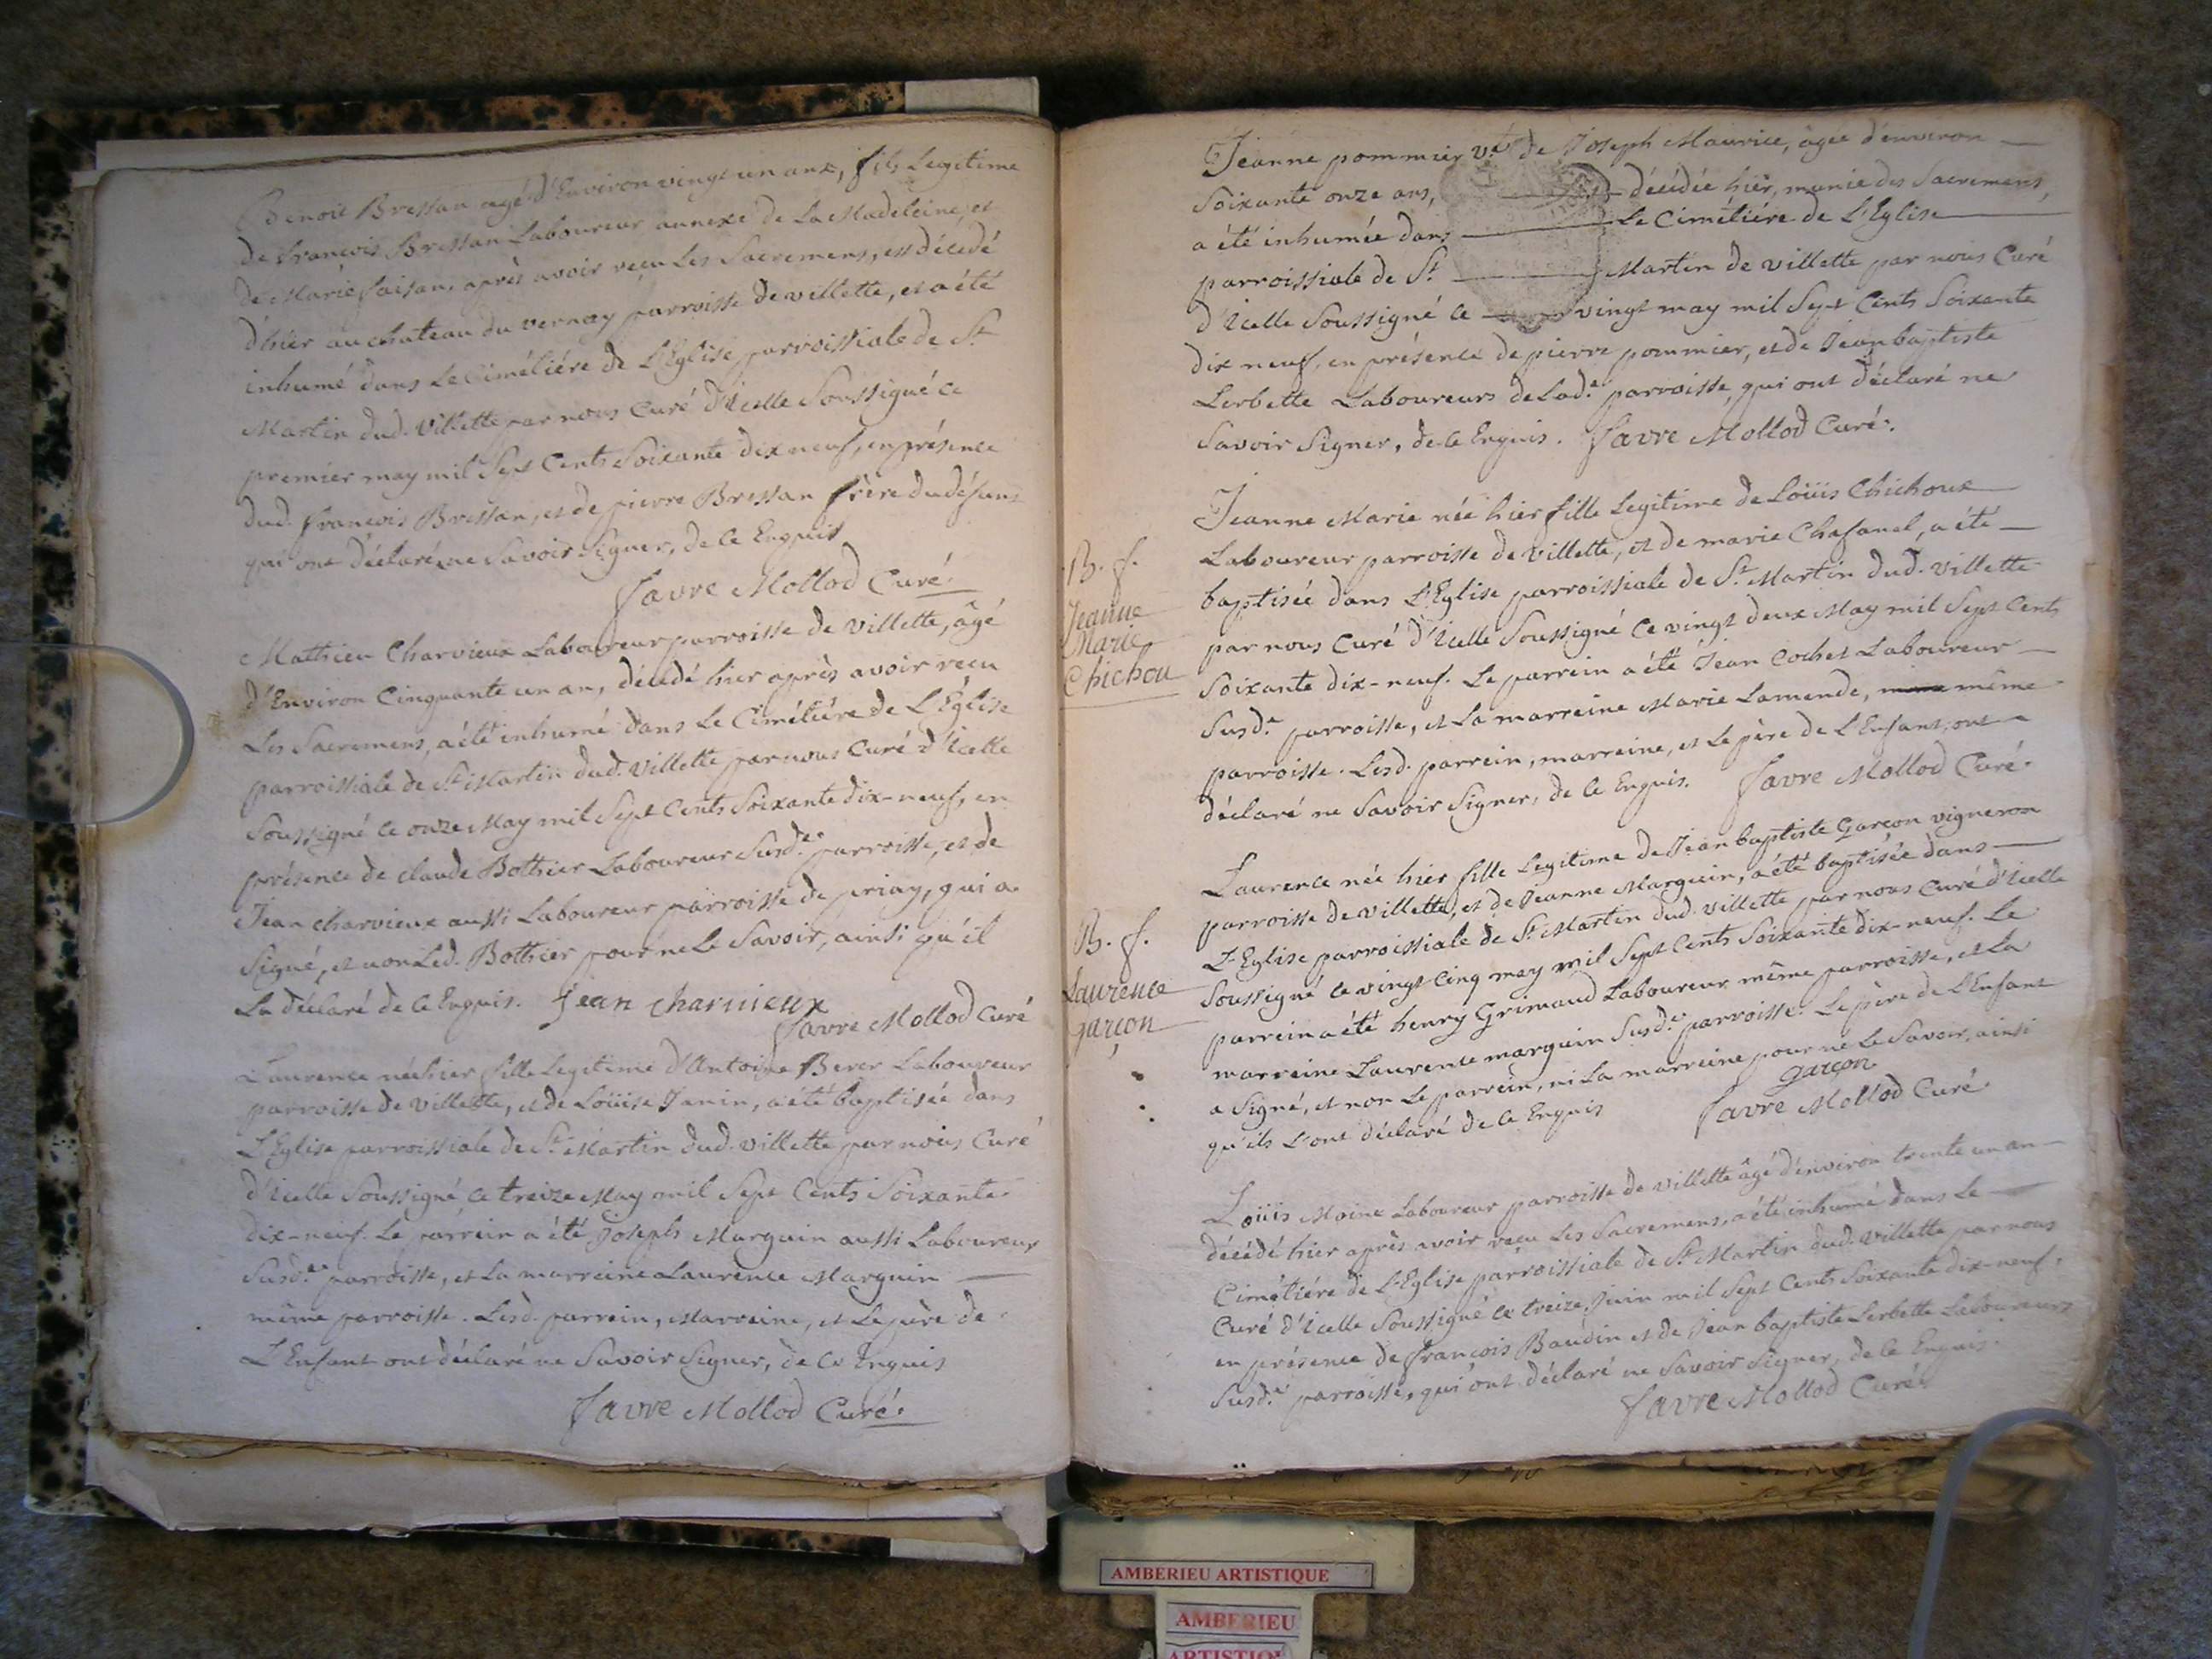 Benoit Bressan agé d'Environ vingt un ans, fils Legitime
de francois Bressan Laboureur annexe de La Madeleine, et
de Marie faisan, après avoir reçu Les Sacremens, est décédé
d'hier au chateau du vernay parroisse de villette, et a été
inhumé dans Le Cimétiére de L'Eglise parroissiale de St
Martin dud. Villette par nous Curé d'Icelle Soussigné ce
premier may mil Sept Cents Soixante dix neuf, en présence
dud. francois Bressan, et de pierre Bressan frère du défunt
qui ont déclaré ne Savoir Signer, de ce Enquis
favre Mollod Curé.
Mathieu Charvieux Laboureur parroisse de villette, âgé
d'Environ Cinquante un an, décédé hier après avoir reçu
Les Sacremens, a été inhumé dans Le Cimétiére de L'Église
parroissiale de St Martin dud. Villette par nous Curé d'Icelle
Soussigné ce onze May mil Sept Cents Soixante dix-neuf, en
présence de claude Bothier Laboureur Susde. parroisse, et de
Jean charvieux aussi Laboureur parroisse de priay, qui a
Signé, et non Led. Bothier pour ne Le Savoir, ainsi qu'il
La déclaré de ce Enquis. Jean charuieux
favre Mollod Curé
Laurence née hier fille Legitime d'Antoine Berer Laboureur
parroisse de villette, et de Loüise Janin, a été baptisée dans
L'Eglise parroissiale de St Martin dud. villette par nous Curé
d'Icelle Soussigné ce treize May mil Sept Cents Soixante
dix-neuf. Le parrein a été Joseph Marguin aussi Laboureur
Susde. parroisse, et La marreine Laurence Marguin
même parroisse. Lesd. parrein, Marreine, et Le père de
L'Enfant ont déclaré ne Savoir Signer, de ce Enquis
favre Mollod Curé.
Jeanne pommier ve. de Joseph Maurice, âgée d'environ
Soixante onze ans, décédée hier, munie des Sacremens,
a été inhumée dans Le Cimétiére de L'Eglise
parroissiale de St Martin de villette par nous Curé
d'Icelle Soussigné ce vingt may mil Sept Cents Soixante
dix neuf, en présence de pierre pommier, et de Jean baptiste
Lerbette Laboureurs de Lade. parroisse, qui ont déclaré ne
Savoir Signer, de ce Enquis. favre Mollod Curé.
B. f.
Jeanne
Marie
Chichou
Jeanne Marie née hier fille Legitime de Loüis Chichoux
Laboureur parroisse de villette, et de marie Chafanel, a été
baptisée dans L'Eglise parroissiale de St Martin dud. villette
par nous Curé d'Icelle Soussigné ce vingt deux May mil Sept Cents
Soixante dix-neuf. Le parrein a été Jean Cochet Laboureur
Susde. parroisse, et La marreine Marie Lamende, même
parroisse. Lesd. parrein, marreine, et Le père de L'Enfant, ont
déclaré ne Savoir Signer, de ce Enquis. favre Mollod Curé.
B. f.
Laurence
garçon
Laurence née hier fille Legitime de Jean baptiste Garçon vigneron
parroisse de villette, et de Jeanne Marguin, a été baptisée dans
L'Eglise parroissiale de St Martin dud. villette par nous Curé d'Icelle
Soussigné ce vingt Cinq may mil Sept Cents Soixante dix-neuf. Le
parrein a été henry Grimaud Laboureur même parroisse, et La
marreine Laurence marguin Susde. parroisse. Le père de L'Enfant
a Signé, et non Le parrein, ni La marreine pour ne Le Savoir, ainsi
qu'ils L'ont déclaré de ce Enquis garçon
favre Mollod Curé.
Loüis Moine Laboureur parroisse de villette âgé d'environ trente un an
décédé hier après avoir reçu Les Sacremens, a été inhumé dans Le
Cimétiére de L'Eglise parroissiale de St Martin dud. villette par nous
Curé d'Icelle Soussigné ce treize Juin mil Sept Cents Soixante dix-neuf,
en présence de francois Baudin et de Jean baptiste Lerbette Laboureurs
Susde. parroisse, qui ont déclaré ne Savoir Signer, de ce Enquis.
favre Mollod Curé.
AMBERIEU ARTISTIQUE
AMBERIEU
ARTISTIQUE